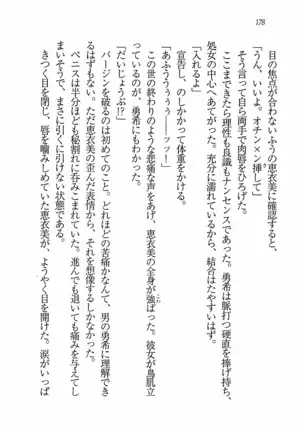 178
目の焦点が合わないふうの恵衣美に確認すると、
「うん、いいよ。オチン×ン挿して」
そう言って自ら両手で肉唇をひろげた。
ここまできたら理性も良識もナンセンスであった。勇希は脈打つ硬直を捧げ持ち、
処女の中心へあてがった。充分に濡れているから、結合はたやすいはず。
「入れるよ」
宣告し、のしかかって体重をかける。
「あふううううぅ――ッッ！」
この世の終わりのような悲痛な声をあげ、恵衣美の全身が強ばった。彼女が鳥肌立
っているのが、勇希にもわかった。
「だいじょうぶ!?」
バージンを破るのは初めてのこと。どれほどの苦痛かなんて、男の勇希に理解でき
るはずもない。ただ恵衣美の歪んだ表情から、それを想像するしかなかった。
ペニスは半分ほども秘割れに呑みこまれていた。進んでも退いても痛みを与えてし
まいそうで、まさに引くに引けない状態である。
きつく目を閉じ、唇を噛みしめていた恵衣美が、ようやく目を開けた。涙がいっぱ